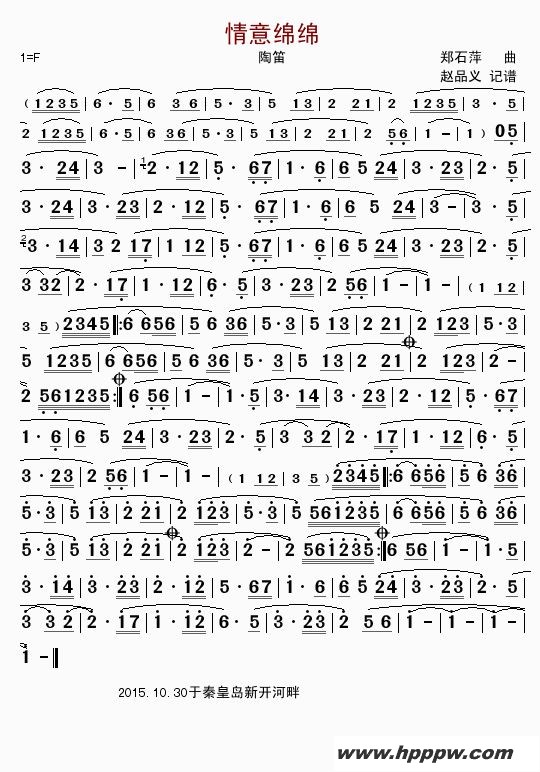 情意绵绵
1=F 陶笛 郑石萍 曲
赵品义 记谱
(1 2 3 5 | 6 · 5 | 6 · 6 | 3 6 | 5 · 3 | 5 | 1 3 | 2 21 | 2 | 1 2 3 5 | 3 · 5
2 1 2 3 5 | 6 · 5 | 6 | 3 6 | 5 · 3 | 5 | 1 3 | 2 21 | 2 | 5 6 | 1 - | 1 ) | 0 5
3 · 24 | 3 - | 2 · 12 | 5 · 67 | 1 · 6 | 6 5 24 | 3 · 23 | 2 · 5
3 · 24 | 3 · 23 | 2 · 12 | 5 · 67 | 1 · 6 | 6 5 24 | 3 - | 3 · 5
3 · 14 | 3 2 17 | 1 12 | 5 · 67 | 1 · 6 | 6 5 24 | 3 · 23 | 2 · 5
3 32 | 2 · 17 | 1 · 12 | 6 · 5 | 3 · 23 | 2 56 | 1 - | 1 - | (1 12
3 5 ) 2345 ‖: 6 656 | 5 6 36 | 5 · 3 | 5 13 | 2 21 | 2 123 | 3 · 5
5 1235 | 6 656 | 5 6 36 | 5 · 3 | 5 13 | 2 21 | 2 123 | 2 -
2 561235 :‖ 6 56 | 1 - | 1 · 5 | 3 · 14 | 3 · 23 | 2 · 12 | 5 · 67
1 · 6 | 6 5 24 | 3 · 23 | 2 · 5 | 3 32 | 2 · 17 | 1 · 12 | 6 · 5
3 · 23 | 2 56 | 1 - | 1 - | (1 12 | 3 5 ) | 2345 ‖: 6 656 | 5 6 36
5 · 3 | 5 13 | 2 21 | 2 123 | 3 · 5 | 5 561235 | 6 656 | 5 6 36
5 · 3 | 5 13 | 2 21 | 2 123 | 2 - | 2 561235 :‖ 6 56 | 1 - | 1 · 5
3 · 14 | 3 · 23 | 2 · 12 | 5 · 67 | 1 · 6 | 6 5 24 | 3 · 23 | 2 · 5
3 32 | 2 · 17 | 1 · 12 | 6 · 5 | 3 · 23 | 2 56 | 1 - | 1 - | 1 -
1 - ‖
2015. 10. 30于秦皇岛新开河畔
www.hpppw.com